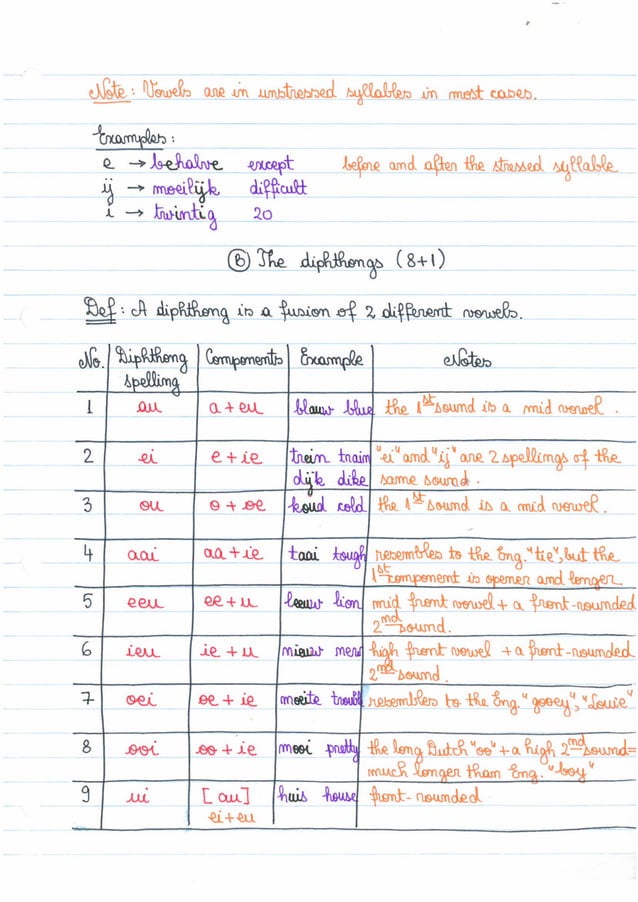 Note: Vowels are in unstressed syllables in most cases.
Examples:
e → behalve except before and after the stressed syllable
ij → moeilijk difficult
i → twintig 20
Ⓑ The diphthongs (8+1)
Def: A diphthong is a fusion of 2 different vowels.
No. Diphthong Components Example Notes
spelling
1 au a + eu blauw blue the 1st sound is a mid vowel.
2 ei e + ie trein train "ei" and "ij" are 2 spellings of the
dijk dike same sound.
3 ou o + oe koud cold the 1st sound is a mid vowel.
4 aai aa + ie taai tough resembles to the Eng. "tie", but the
1st component is opener and longer
5 eeu ee + u leeuw lion mid front vowel + a front-rounded
2nd sound.
6 ieu ie + u nieuw new high front vowel + a front-rounded
2nd sound.
7 oei oe + ie moeite trouble resembles to the Eng. "gooey", "Louie"
8 ooi oo + ie mooi pretty the long Dutch "oo" + a high 2nd sound=
much longer than Eng. "boy"
9 ui [au] huis house front-rounded
ei+eu